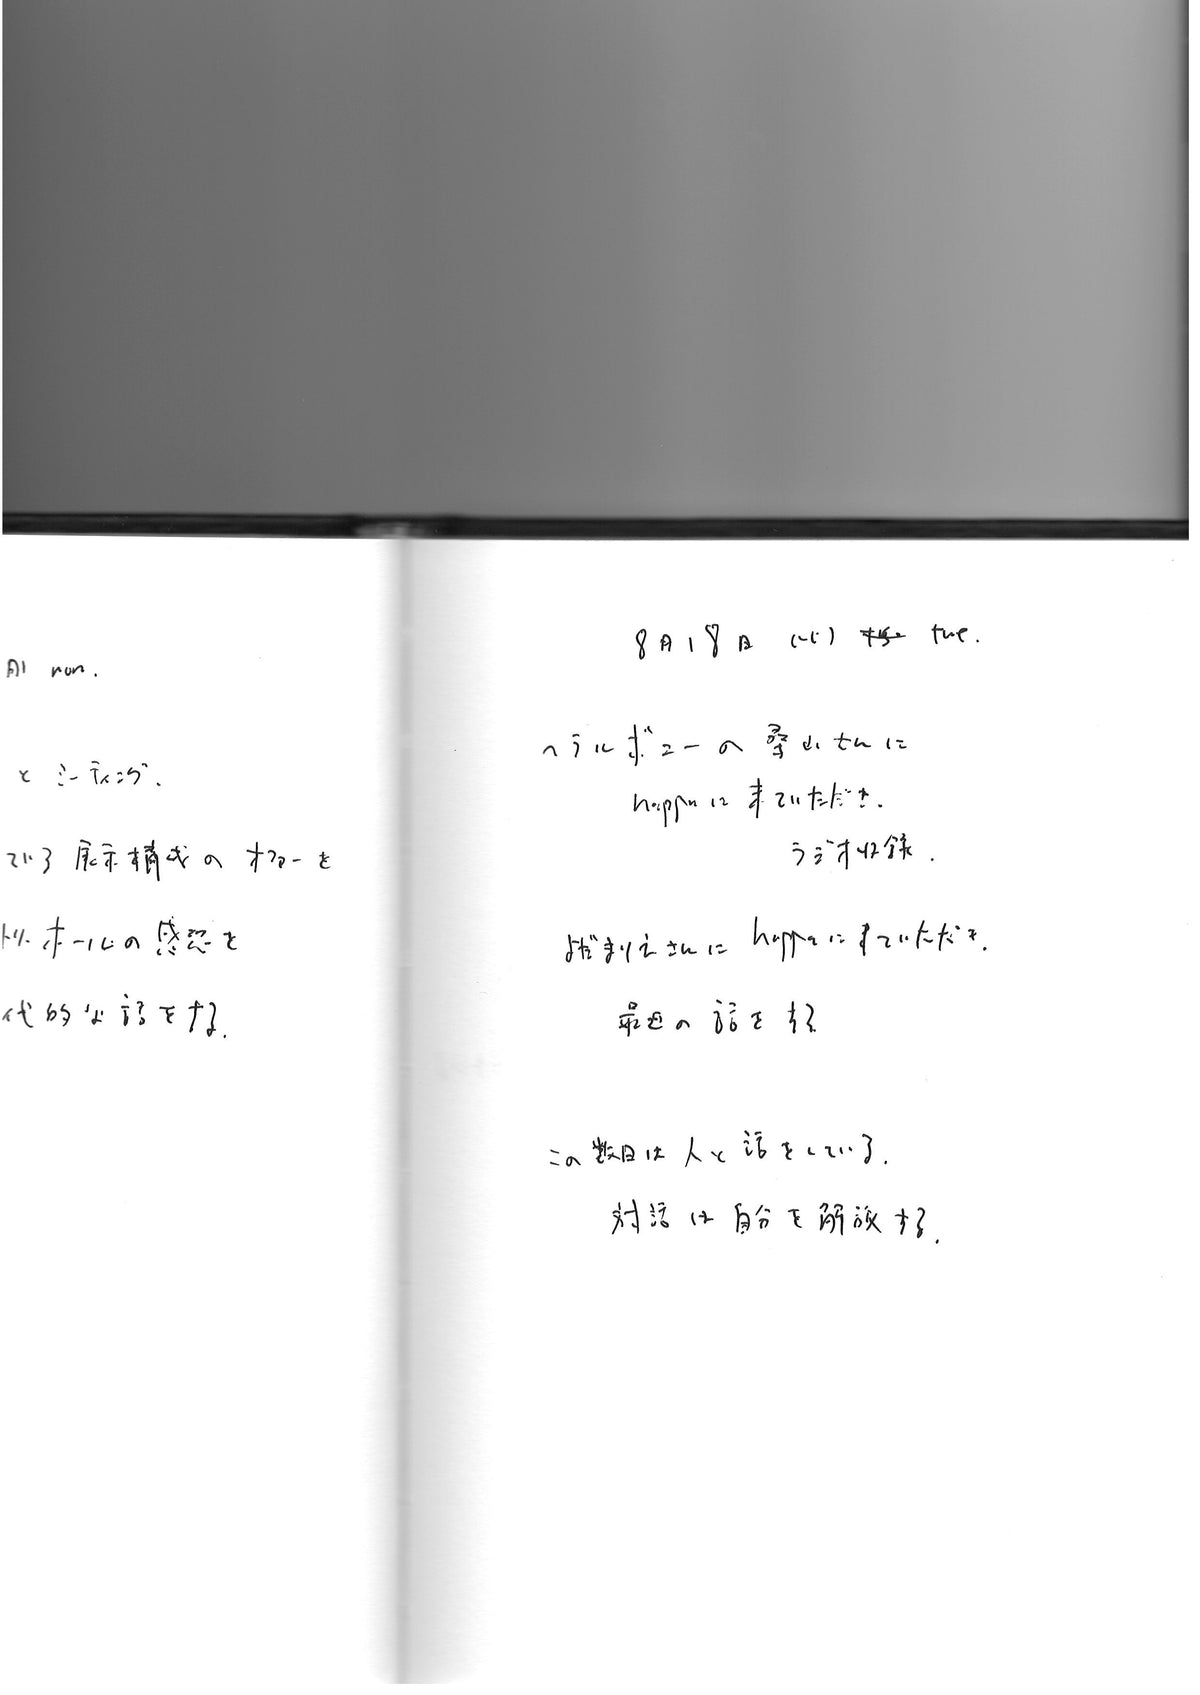 月) mon.
とミーティング.
ている展示構成のオファーを
トリーホールの感想を
代的な話をする.
8月18日 (火) tue.
ヘラルボニーの桑山さんに
happaに来ていただき.
ラジオ収録.
よだまりえさんに happaに来ていただき.
最近の話をする
この数日は人と話をしている.
対話は自分を解放する.